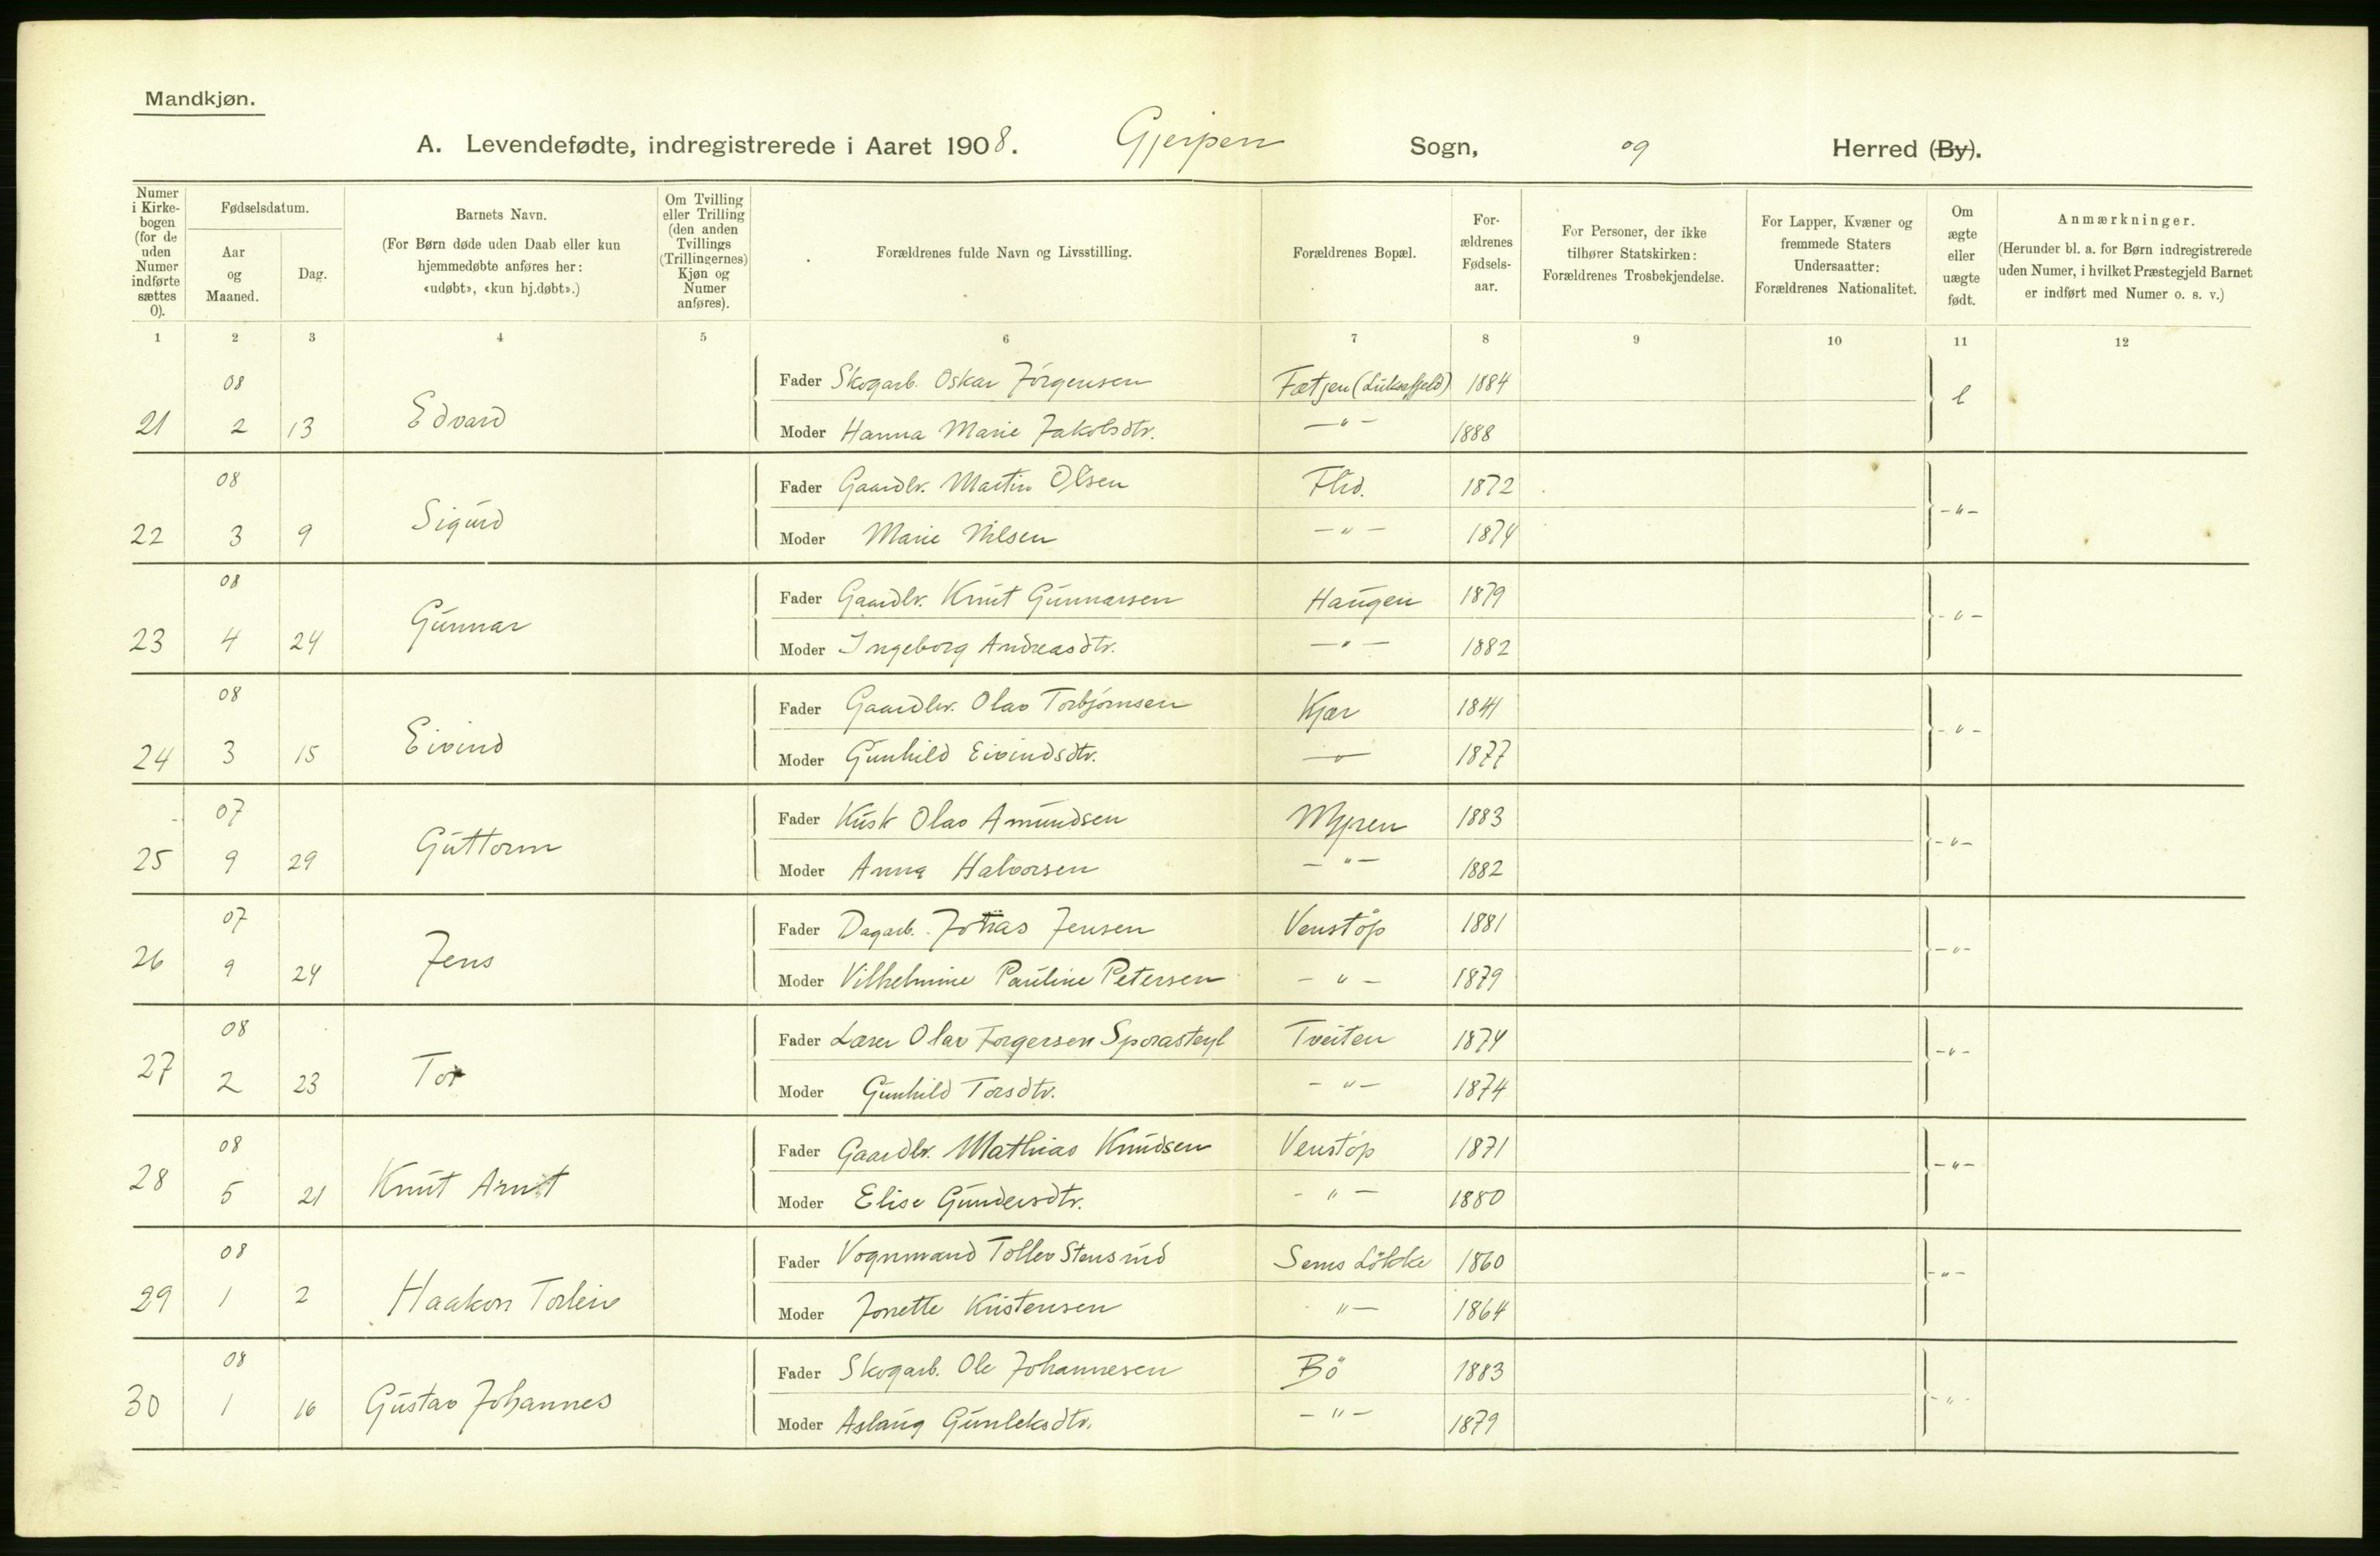 Mandkjøn.
A. Levendefødte, indregistrerede i Aaret 1908. Gjerpen Sogn, og Herred (By).
Numer i Kirkebogen (for de uden Numer indførte sættes 0).
Fødselsdatum.
Aar og Maaned.
Dag.
Barnets Navn.
(For Børn døde uden Daab eller kun hjemmedøbte anføres her: «udøbt», «kun hj.døbt».)
Om Tvilling eller Trilling (den anden Tvillings (Trillingernes) Kjøn og Numer anføres).
Forældrenes fulde Navn og Livsstilling.
Forældrenes Bopæl.
Forældrenes Fødselsaar.
For Personer, der ikke tilhører Statskirken: Forældrenes Trosbekjendelse.
For Lapper, Kvæner og fremmede Staters Undersaatter: Forældrenes Nationalitet.
Om ægte eller uægte født.
Anmærkninger.
(Herunder bl. a. for Børn indregistrerede uden Numer, i hvilket Præstegjeld Barnet er indført med Numer o. s. v.)
1 2 3 4 5 6 7 8 9 10 11 12
08 Fader Skogarb. Oskar Jörgensen Fætjen (Luksefjeld) 1884
21 2 13 Edvard Moder Hanna Marie Jakobsdtr. —"— 1888
08 Fader Gaardbr. Martin Olsen 1872
22 3 9 Sigurd Moder Marie Nilsen —"— 1874 —"—
08 Fader Gaardbr. Knut Gunnarsen Haugen 1879
23 4 24 Gunnar Moder Ingeborg Andreasdtr. —"— 1882 —"—
08 Fader Gaardbr. Olav Torbjörnsen Kjær 1841
24 3 15 Eivind Moder Gunhild Eivindsdtr. —"— 1877 —"—
07 Fader Kusk Olav Amundsen Myren 1883
25 9 29 Guttorm Moder Anna Halvorsen —"— 1882 —"—
07 Fader Dagarb. Jensen Venstöp 1881
26 9 24 Jens Moder Vilhelmine Pauline Petersen —"— 1879 —"—
08 Fader Lærer Olav Torgersen Tveiten 1874
27 2 23 Tor Moder Gunhild Torsdtr. —"— 1874 —"—
08 Fader Gaardbr. Mathias Knudsen Venstöp 1871
28 5 21 Knut Arnt Moder Elise Gundersdtr. —"— 1880 —"—
08 Fader Vognmand Tollev Stensrud Sems Lökke 1860
29 1 2 Haakon Torleiv Moder Jonette Kristensen "— 1864 —"—
08 Fader Skogarb. Ole Johannesen Bö 1883
30 1 16 Gustav Johannes Moder Aslaug Gunleksdtr. —"— 1879 —"—